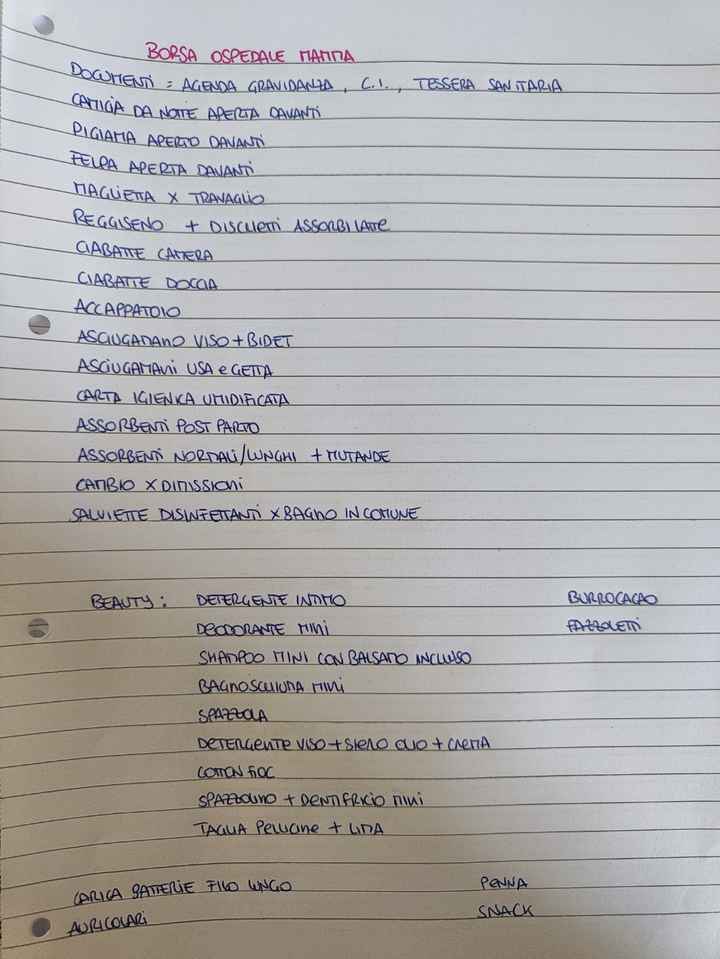 BORSA OSPEDALE MAMMA
DOCUMENTI : AGENDA GRAVIDANZA, C.I., TESSERA SANITARIA
CAMICIA DA NOTTE APERTA DAVANTI
PIGIAMA APERTO DAVANTI
FELPA APERTA DAVANTI
MAGLIETTA X TRAVAGLIO
REGGISENO + DISCHETTI ASSORBILATTE
CIABATTE CAMERA
CIABATTE DOCCIA
ACCAPPATOIO
ASCIUGAMANO VISO + BIDET
ASCIUGAMANI USA e GETTA
CARTA IGIENICA UMIDIFICATA
ASSORBENTI POST PARTO
ASSORBENTI NORMALI/LUNGHI + MUTANDE
CAMBIO X DIMISSIONI
SALVIETTE DISINFETTANTI X BAGNO IN COMUNE
BEAUTY : DETERGENTE INTIMO BURROCACAO
DEODORANTE MINI FAZZOLETTI
SHAMPOO MINI CON BALSAMO INCLUSO
BAGNOSCHIUMA MINI
SPAZZOLA
DETERGENTE VISO + SIERO OLIO + CREMA
COTTON FIOC
SPAZZOLINO + DENTIFRICIO MINI
TAGLIA PELLICINE + LIMA
CARICA BATTERIE FILO LUNGO PENNA
AURICOLARI SNACK